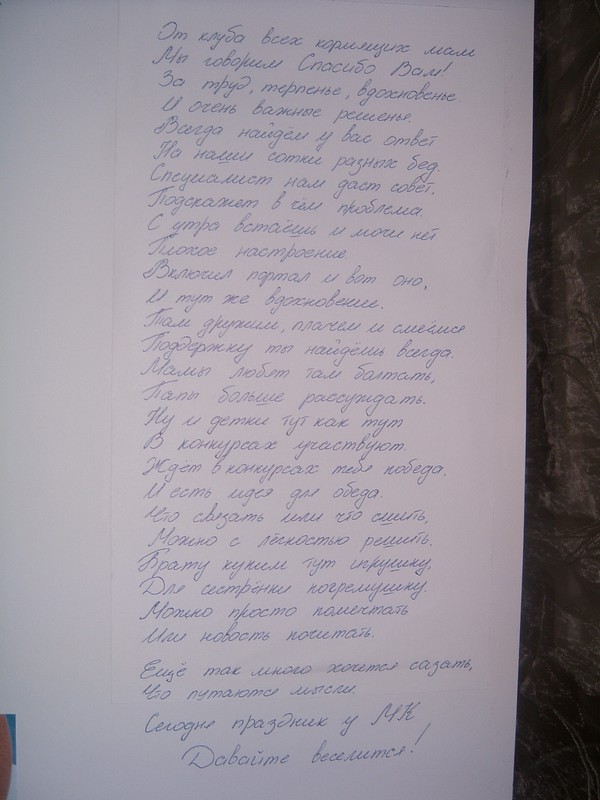 От клуба всех кормящих мам
Мы говорим Спасибо Вам!
За труд, терпенье, вдохновенье.
И очень важные решенье.
Всегда найдём у вас ответ
На наши сотки разных бед.
Специалист нам даст совет,
Подскажет в чём проблема.
С утра встаёшь и мочи нет
Плохое настроение.
Включил портал и вот оно,
И тут же вдохновение.
Там дружим, плачем и смеёмся
Поддержку ты найдёшь всегда.
Мамы любят там болтать,
Папы больше рассуждать.
Ну и детки тут как тут
В конкурсах участвуют.
Ждёт в конкурсах тебя победа,
И есть идея для обеда.
Что связать или что сшить,
Можно с лёгкостью решить.
Брату купим тут игрушку,
Для сестрёнки погремушку.
Можно просто помечтать
Или новость почитать.
Ещё так много хочется сазать,
Что путаются мысли.
Сегодня праздник у МК
Давайте веселится!